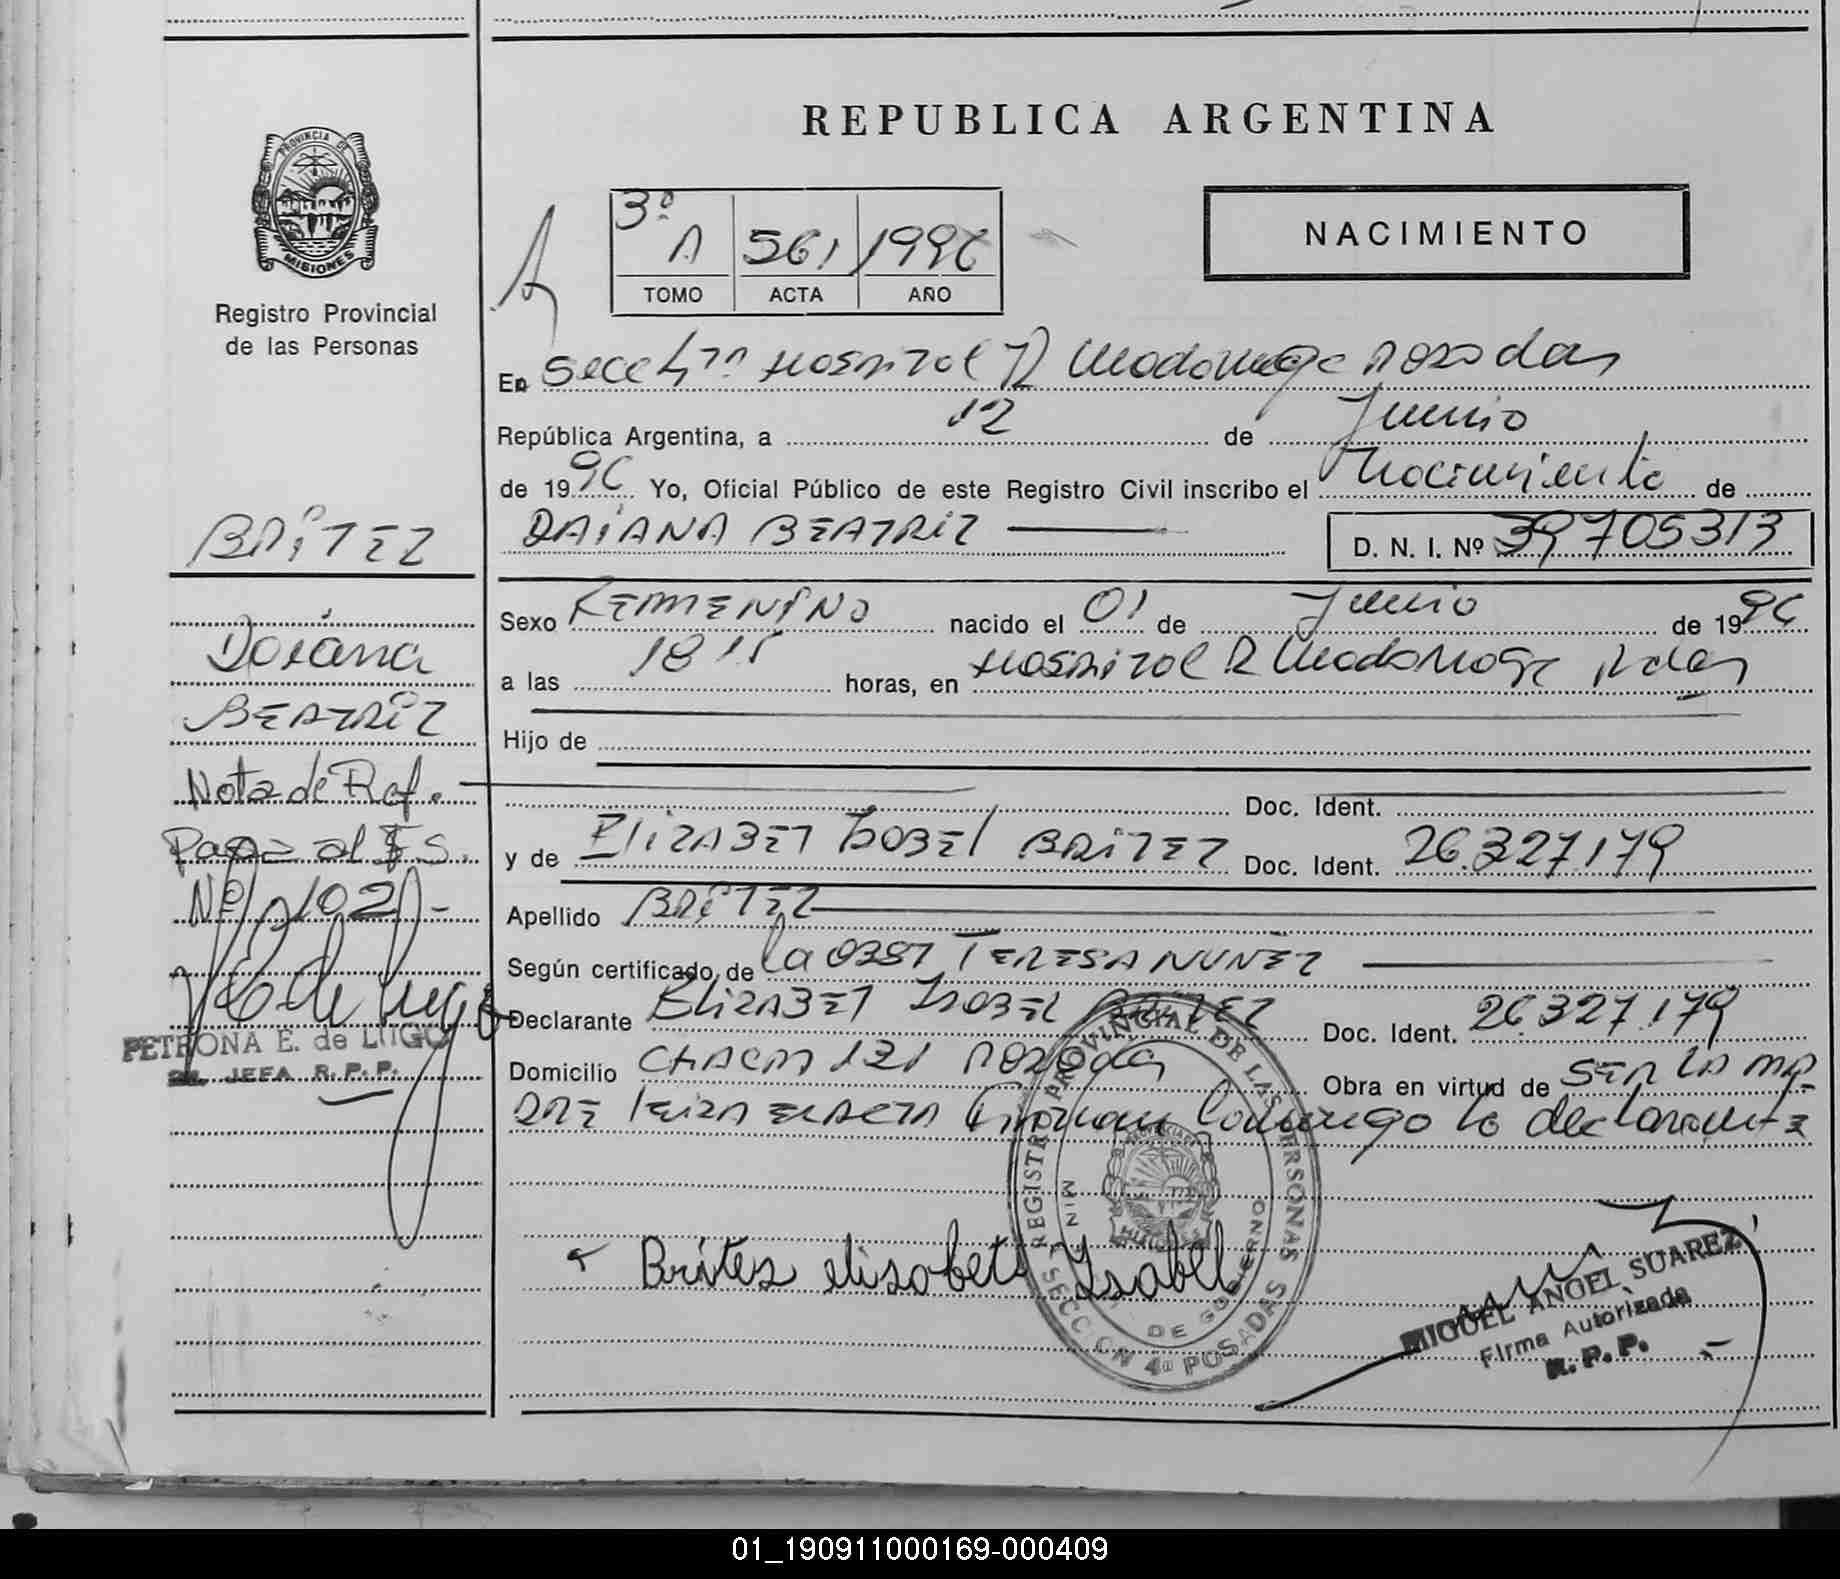 REPUBLICA ARGENTINA
PROVINCIA DE
MISIONES
Registro Provincial
de las Personas
3º A 561 1996
TOMO ACTA AÑO
NACIMIENTO
En Secc 4ta Hospital R Madariaga Posadas
República Argentina, a 12 de Junio
de 1996 Yo, Oficial Público de este Registro Civil inscribo el Nacimiento de
DAIANA BEATRIZ
D. N. I. Nº 39705313
Sexo FEMMENINO nacido el 01 de Junio de 1996
a las 18 15 horas, en Hospital R Madariaga Pdas
Hijo de
Doc. Ident.
y de ELIZABET ISABEL BRITEZ Doc. Ident. 26.327.179
Apellido BRITEZ
Según certificado de la OBST TERESA NUÑEZ
Declarante ELIZABET ISABEL BRITEZ Doc. Ident. 26.327.179
Domicilio CHACRA 121 Posadas Obra en virtud de SER LA MA
DRE Leida el acta firman conmigo la declarante
Britez elisabet Ysabel
REGISTRO PROVINCIAL DE LAS PERSONAS
MIN DE GOBIERNO
SECCION 4ª POSADAS
MIGUEL ANGEL SUAREZ
Firma Autorizada
R. P. P.
BRITEZ
Daiana
BEATRIZ
Nota de Ref.
Pasa al F S.
Nº 102
PETRONA E. de LUGO
JEFA R. P. P.
01_190911000169-000409